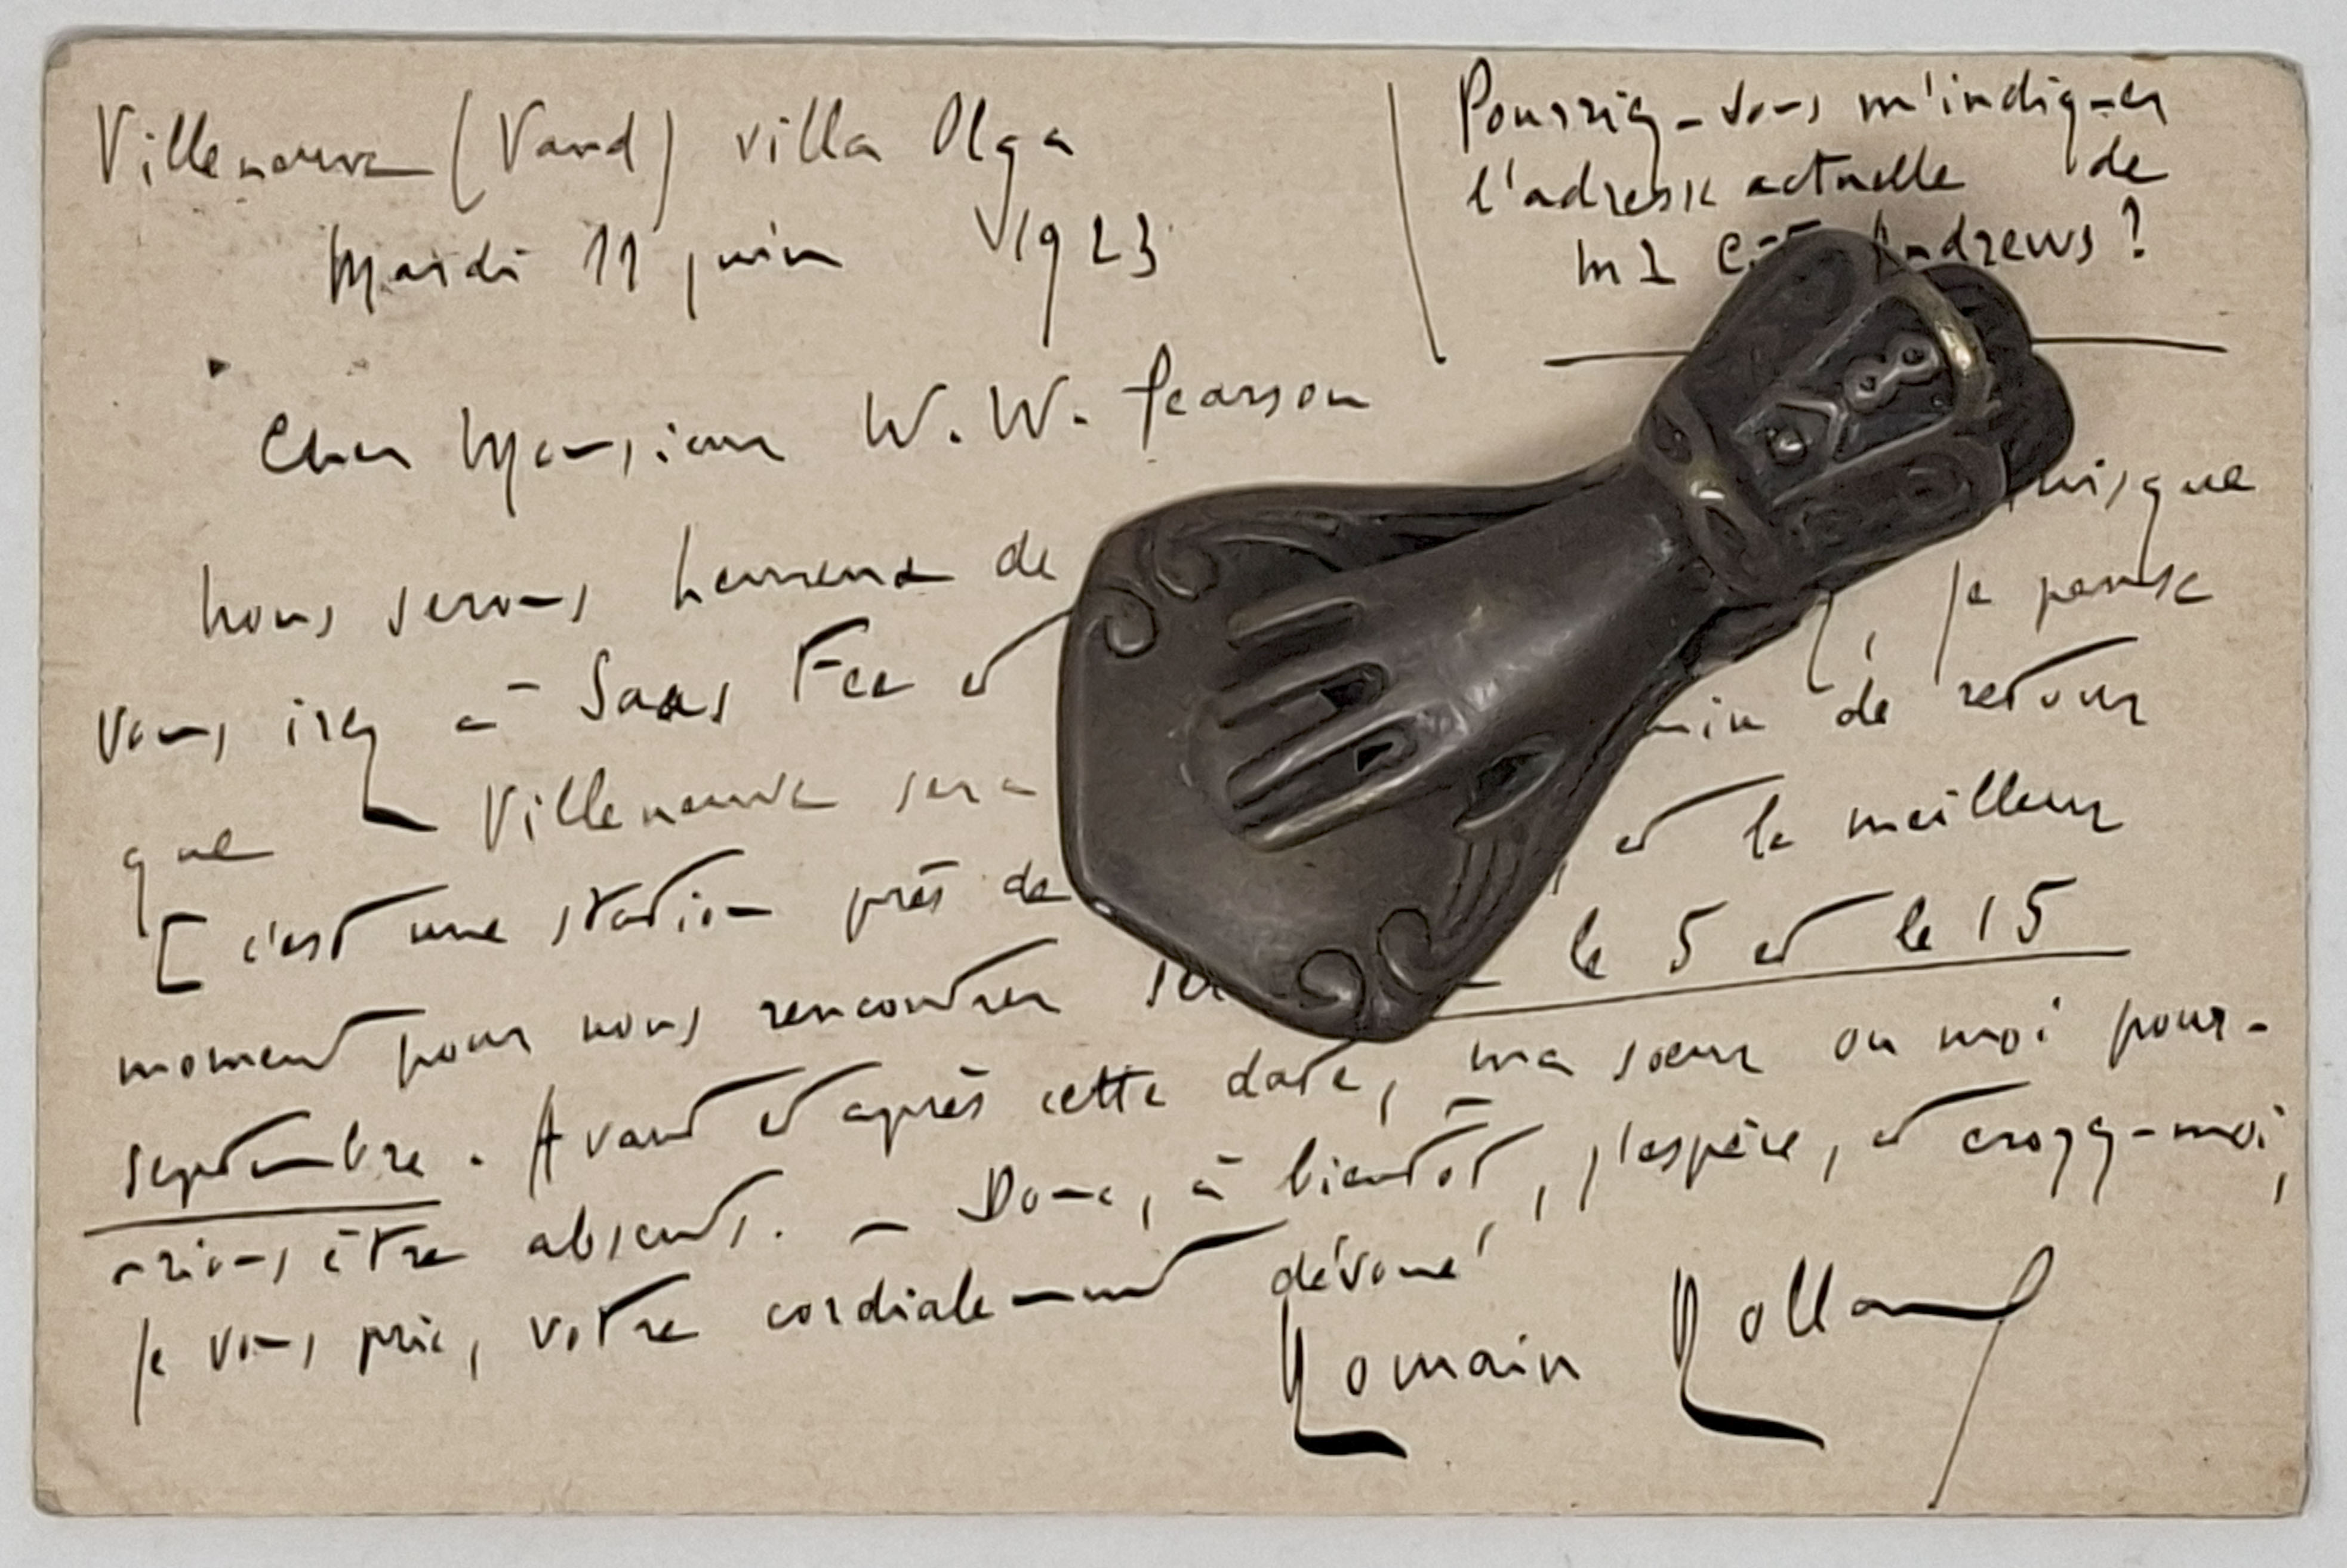 Villeneuve (Vaud) villa Olga
Mardi 11 juin 1923
Pourriez-vous m'indiquer
l'adresse actuelle de
Andrews ?
Cher Monsieur W. W. Pearson
nous serons heureux de puisque
vous irez à Saas Fee et je pense
que Villeneuve sera de retour
[ c'est une station près de et le meilleur
moment pour nous rencontrer le 5 et le 15
septembre. Avant et après cette date, ma sœur ou moi pour-
rions être absents. — Donc, à bientôt, j'espère, et croyez-moi,
je vous prie, votre cordialement dévoué
Romain Rolland